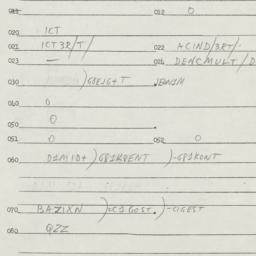 011 012 0
020 ICT
021 ICT3R/T/ 022 ACIND/3RT/.
023 — 024 DENCMULT/D
030 )GOEJG+T JEWISH
040 0
050 0
051 0 052 0
060 D1M1D+)GR1KRENT )-GR1KONT
070 BAZIXN )-C1GOST.)-CIGEST
080 QZZ